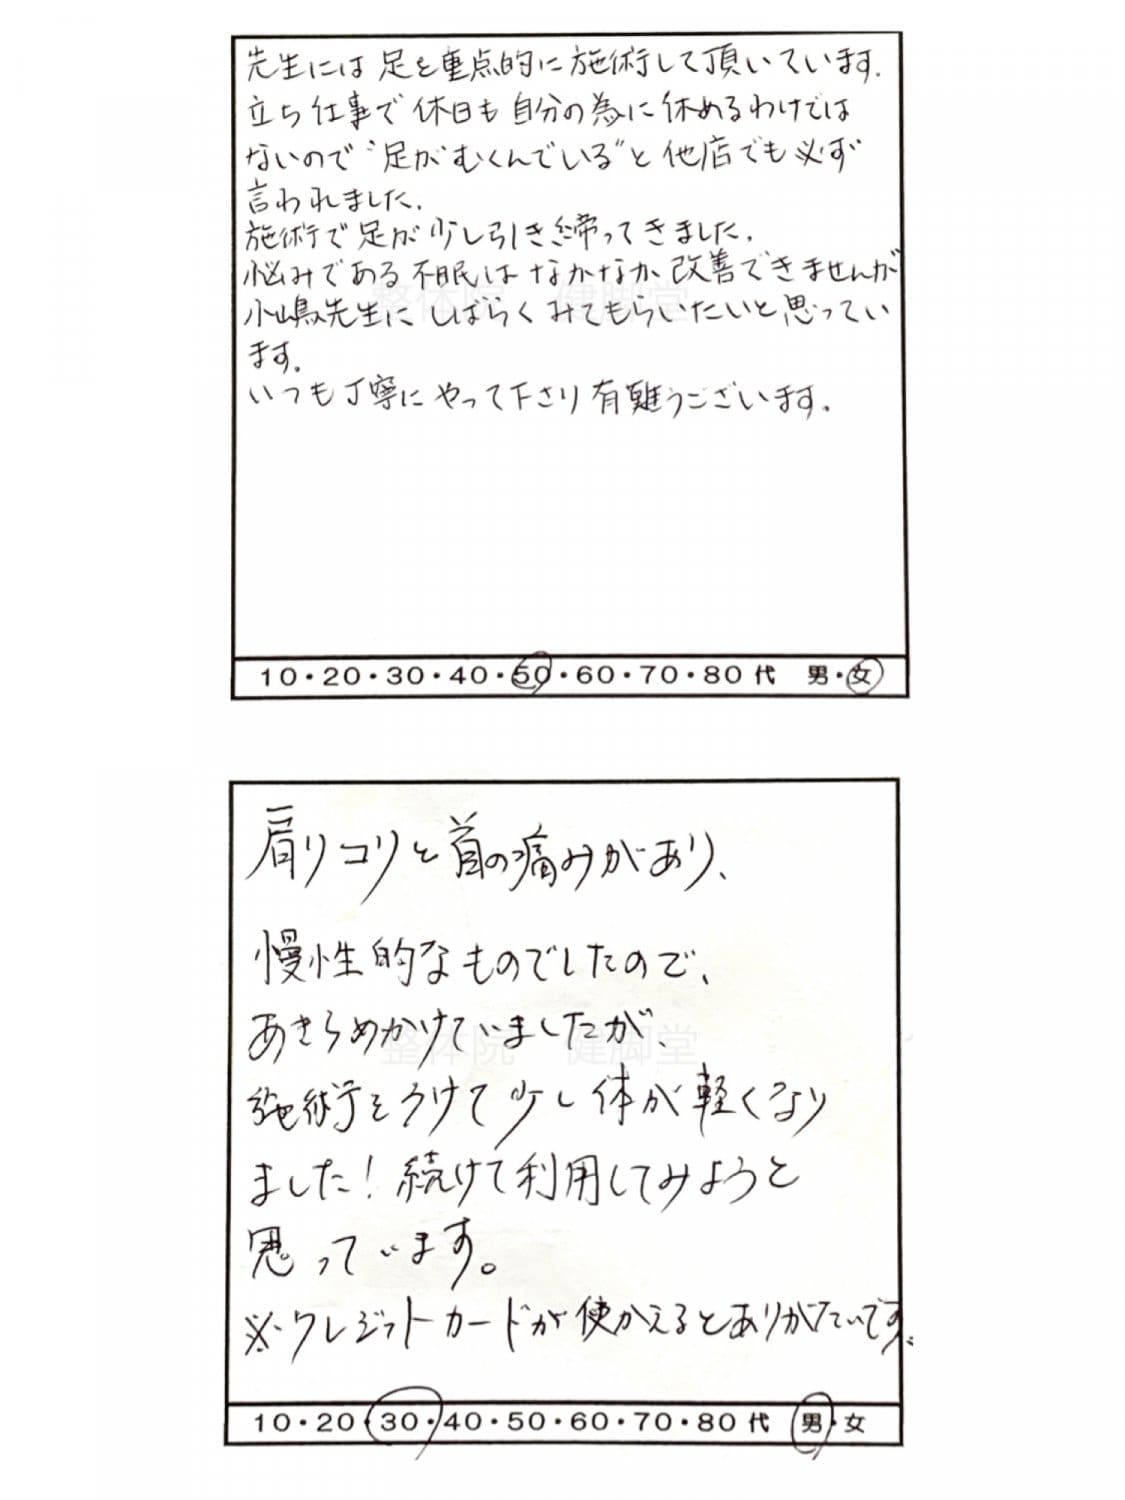 先生には足を重点的に施術して頂いています.
立ち仕事で休日も自分の為に休めるわけでは
ないので“足がむくんでいる”と他店でも必ず
言われました.
施術で足が少し引き締ってきました.
悩みである不眠はなかなか改善できませんが
小嶋先生にしばらくみてもらいたいと思ってい
ます。
いつも丁寧にやって下さり有難うございます.
整体院 健脚堂
10・20・30・40・50・60・70・80代 男・女
肩りコリと首の痛みがあり、
慢性的なものでしたので、
あきらめかけていましたが、
整体院 健脚堂
施術をうけて少し体が軽くなり
ました!続けて利用してみようと
思っています。
※クレジットカードが使かえるとありがたいです.
10・20・30・40・50・60・70・80代 男・女